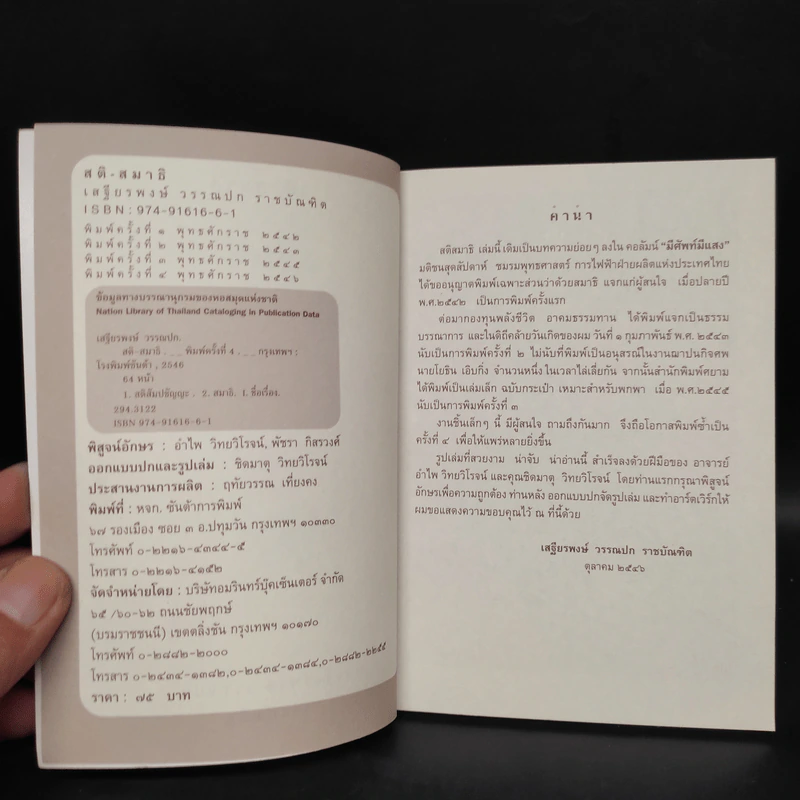 สติ-สมาธิ
เสฐียรพงษ์ วรรณปก ราชบัณฑิต
ISBN : 974-91616-6-1
พิมพ์ครั้งที่ ๑ พุทธศักราช ๒๕๔๒
พิมพ์ครั้งที่ ๒ พุทธศักราช ๒๕๔๓
พิมพ์ครั้งที่ ๓ พุทธศักราช ๒๕๔๕
พิมพ์ครั้งที่ ๔ พุทธศักราช ๒๕๔๖
ข้อมูลทางบรรณานุกรมของหอสมุดแห่งชาติ
Nation Library of Thailand Cataloging in Publication Data
เสฐียรพงษ์ วรรณปก.
สติ-สมาธิ . _ _ พิมพ์ครั้งที่ 4 . _ _ กรุงเทพฯ :
โรงพิมพ์ซันต้า , 2546
64 หน้า
1. สติสัมปชัญญะ . 2. สมาธิ. I. ชื่อเรื่อง.
294.3122
ISBN 974-91616-6-1
พิสูจน์อักษร : อำไพ วิทยวิโรจน์, พัชรา กิสรวงศ์
ออกแบบปกและรูปเล่ม : ชิดมาตุ วิทยวิโรจน์
ประสานงานการผลิต : ฤทัยวรรณ เที่ยงคง
พิมพ์ที่ : หจก. ซันต้าการพิมพ์
๖๗ รองเมือง ซอย ๓ อ.ปทุมวัน กรุงเทพฯ ๑๐๓๓๐
โทรศัพท์ ๐-๒๒๑๖-๔๓๔๔-๕
โทรสาร ๐-๒๒๑๖-๔๑๕๒
จัดจำหน่ายโดย : บริษัทอมรินทร์บุ๊คเซ็นเตอร์ จำกัด
๖๕ /๖๐-๖๒ ถนนชัยพฤกษ์
(บรมราชชนนี) เขตตลิ่งชัน กรุงเทพฯ ๑๐๑๗๐
โทรศัพท์ ๐-๒๘๘๒-๒๐๐๐
โทรสาร ๐-๒๔๓๔-๑๓๘๒,๐-๒๔๓๔-๑๓๘๔,๐-๒๘๘๒-๒๒๕๕
ราคา : ๗๕ บาท
คำนำ
สติสมาธิ เล่มนี้ เดิมเป็นบทความย่อยๆ ลงใน คอลัมน์ “มีศัพท์มีแสง”
มติชนสุดสัปดาห์ ชมรมพุทธศาสตร์ การไฟฟ้าฝ่ายผลิตแห่งประเทศไทย
ได้ขออนุญาตพิมพ์เฉพาะส่วนว่าด้วยสมาธิ แจกแก่ผู้สนใจ เมื่อปลายปี
พ.ศ.๒๕๔๒ เป็นการพิมพ์ครั้งแรก
ต่อมากองทุนพลังชีวิต อาคมธรรมทาน ได้พิมพ์แจกเป็นธรรม
บรรณาการ และในดิถีคล้ายวันเกิดของผม วันที่ ๑ กุมภาพันธ์ พ.ศ. ๒๕๔๓
นับเป็นการพิมพ์ครั้งที่ ๒ ไม่นับที่พิมพ์เป็นอนุสรณ์ในงานฌาปนกิจศพ
นายโยธิน เอิบกิ่ง จำนวนหนึ่ง ในเวลาไล่เลี่ยกัน จากนั้นสำนักพิมพ์ศยาม
ได้พิมพ์เป็นเล่มเล็ก ฉบับกระเป๋า เหมาะสำหรับพกพา เมื่อ พ.ศ.๒๕๔๕
นับเป็นการพิมพ์ครั้งที่ ๓
งานชิ้นเล็กๆ นี้ มีผู้สนใจ ถามถึงกันมาก จึงถือโอกาสพิมพ์ซ้ำเป็น
ครั้งที่ ๔ เพื่อให้แพร่หลายยิ่งขึ้น
รูปเล่มที่สวยงาม น่าจับ น่าอ่านนี้ สำเร็จลงด้วยฝีมือของ อาจารย์
อำไพ วิทยวิโรจน์ และคุณชิดมาตุ วิทยวิโรจน์ โดยท่านแรกกรุณาพิสูจน์
อักษรเพื่อความถูกต้อง ท่านหลัง ออกแบบปกจัดรูปเล่ม และทำอาร์ตเวิร์กให้
ผมขอแสดงความขอบคุณไว้ ณ ที่นี้ด้วย
เสฐียรพงษ์ วรรณปก ราชบัณฑิต
ตุลาคม ๒๕๔๖